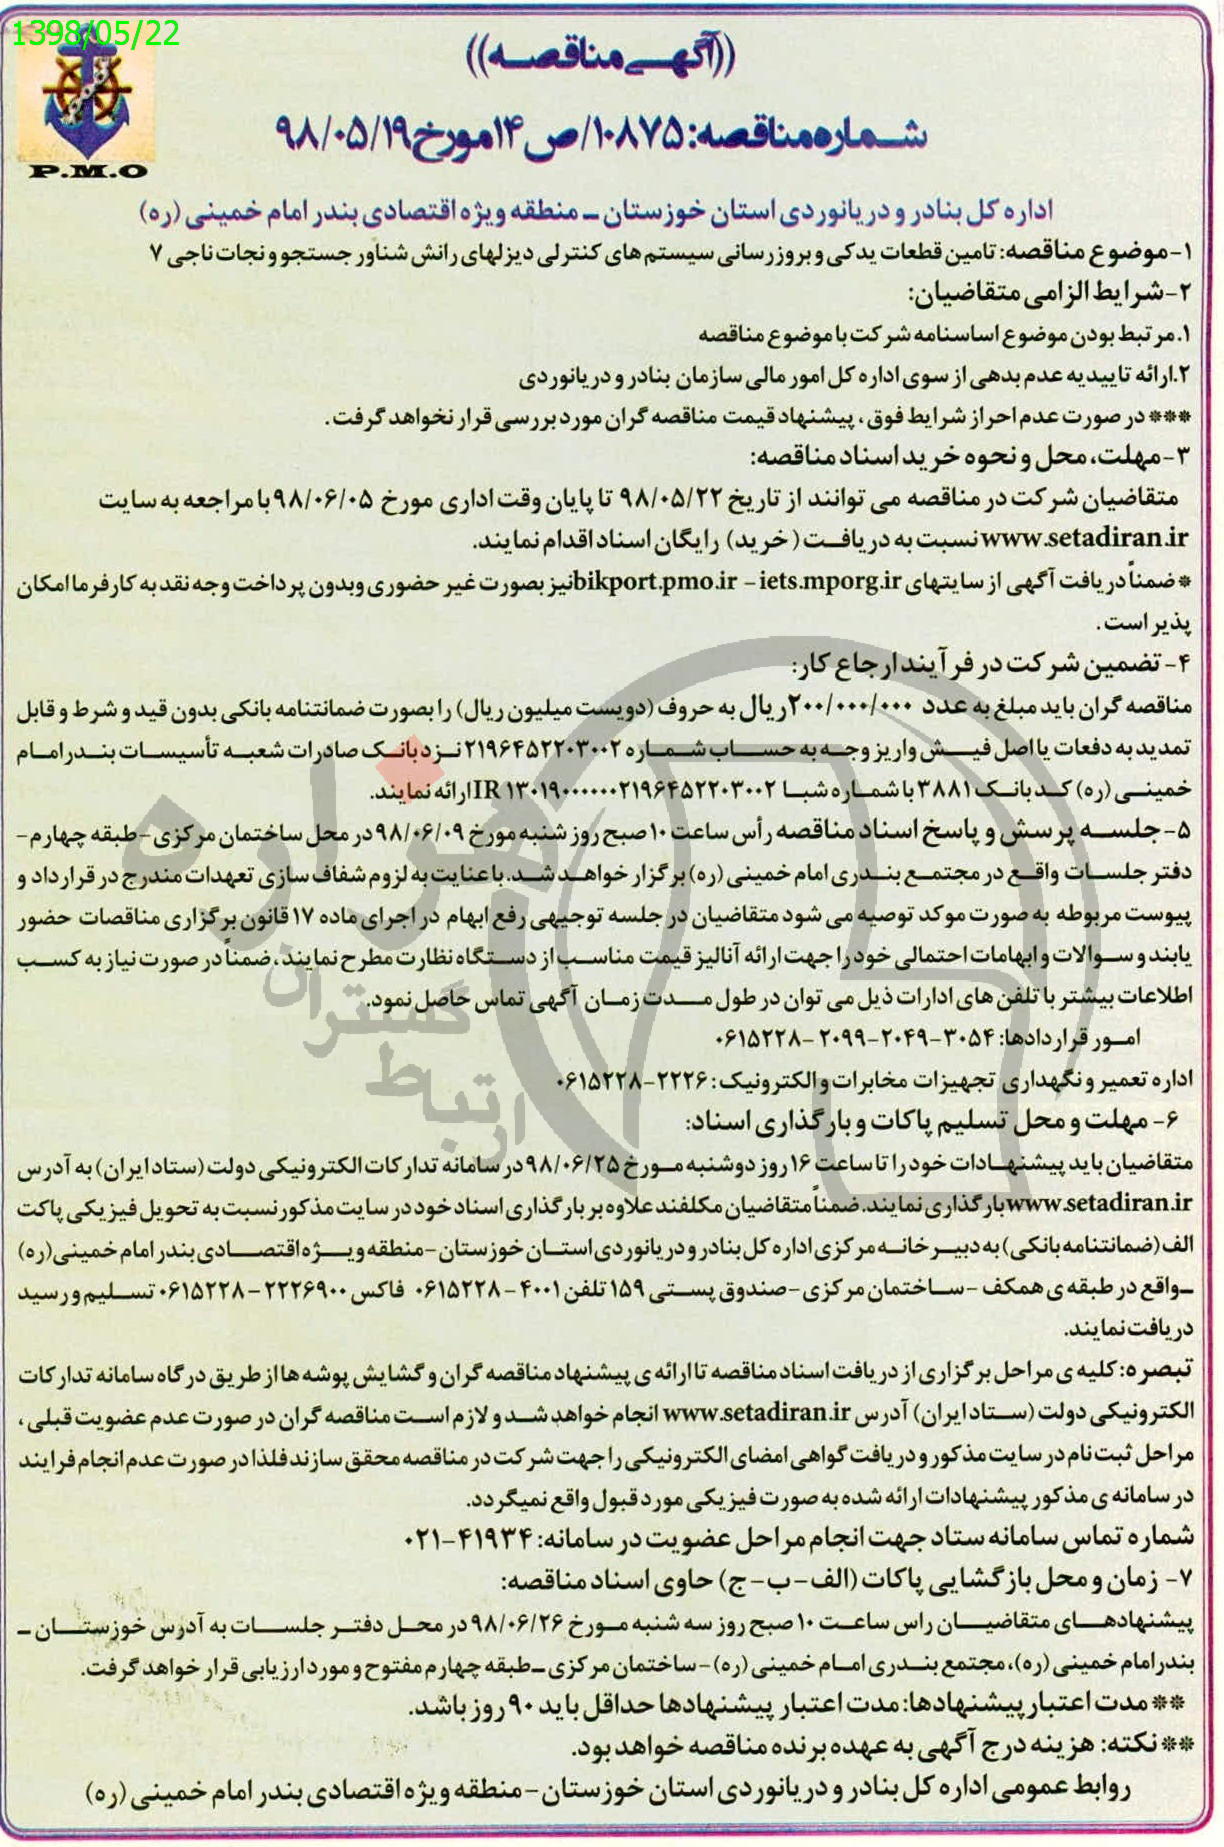 1398/05/22
((آگهی مناقصه))
شماره مناقصه: ۱۰۸۷۵/ص ۱۴ مورخ ۹۸/۰۵/۱۹
P.M.O
اداره کل بنادر و دریانوردی استان خوزستان – منطقه ویژه اقتصادی بندر امام خمینی (ره)
۱-موضوع مناقصه: تامین قطعات یدکی و بروز رسانی سیستم های کنترلی دیزلهای رانش شناور جستجو و نجات ناجی ۷
۲-شرایط الزامی متقاضیان:
۱.مرتبط بودن موضوع اساسنامه شرکت با موضوع مناقصه
۲.ارائه تاییدیه عدم بدهی از سوی اداره کل امور مالی سازمان بنادر و دریانوردی
*** در صورت عدم احراز شرایط فوق، پیشنهاد قیمت مناقصه گران مورد بررسی قرار نخواهد گرفت.
۳-مهلت، محل و نحوه خرید اسناد مناقصه:
متقاضیان شرکت در مناقصه می توانند از تاریخ ۹۸/۰۵/۲۲ تا پایان وقت اداری مورخ ۹۸/۰۶/۰۵ با مراجعه به سایت
www.setadiran.ir نسبت به دریافت (خرید) رایگان اسناد اقدام نمایند.
* ضمناً دریافت آگهی از سایتهای bikport.pmo.ir – iets.mporg.ir نیز بصورت غیر حضوری وبدون پرداخت وجه نقد به کارفرما امکان
پذیر است.
۴- تضمین شرکت در فرآیند ارجاع کار:
مناقصه گران باید مبلغ به عدد ۲۰۰/۰۰۰/۰۰۰ ریال به حروف (دویست میلیون ریال) را بصورت ضمانتنامه بانکی بدون قید و شرط و قابل
تمدید به دفعات یا اصل فیش واریز وجه به حساب شماره ۲۱۹۶۴۵۲۲۰۳۰۰۲ نزد بانک صادرات شعبه تأسیسات بندر امام
خمینی (ره) کد بانک ۳۸۸۱ با شماره شبا IR ۱۳۰۱۹۰۰۰۰۰۰۰۲۱۹۶۴۵۲۲۰۳۰۰۲ ارائه نمایند.
۵- جلسه پرسش و پاسخ اسناد مناقصه رأس ساعت ۱۰ صبح روز شنبه مورخ ۹۸/۰۶/۰۹ در محل ساختمان مرکزی-طبقه چهارم-
دفتر جلسات واقع در مجتمع بندری امام خمینی (ره) برگزار خواهد شد. با عنایت به لزوم شفاف سازی تعهدات مندرج در قرارداد و
پیوست مربوطه به صورت موکد توصیه می شود متقاضیان در جلسه توجیهی رفع ابهام در اجرای ماده ۱۷ قانون برگزاری مناقصات حضور
یابند و سوالات و ابهامات احتمالی خود را جهت ارائه آنالیز قیمت مناسب از دستگاه نظارت مطرح نمایند، ضمناً در صورت نیاز به کسب
اطلاعات بیشتر با تلفن های ادارات ذیل می توان در طول مدت زمان آگهی تماس حاصل نمود.
امور قراردادها: ۳۰۵۴-۲۰۴۹-۲۰۹۹ -۰۶۱۵۲۲۸
اداره تعمیر و نگهداری تجهیزات مخابرات و الکترونیک: ۲۲۲۶-۰۶۱۵۲۲۸
۶- مهلت و محل تسلیم پاکات و بارگذاری اسناد:
متقاضیان باید پیشنهادات خود را تا ساعت ۱۶ روز دوشنبه مورخ ۹۸/۰۶/۲۵ در سامانه تدارکات الکترونیکی دولت (ستاد ایران) به آدرس
www.setadiran.ir بارگذاری نمایند. ضمناً متقاضیان مکلفند علاوه بر بارگذاری اسناد خود در سایت مذکور نسبت به تحویل فیزیکی پاکت
الف (ضمانتنامه بانکی) به دبیرخانه مرکزی اداره کل بنادر و دریانوردی استان خوزستان -منطقه ویژه اقتصادی بندر امام خمینی (ره)
–واقع در طبقه ی همکف -ساختمان مرکزی -صندوق پستی ۱۵۹ تلفن ۴۰۰۱ - ۰۶۱۵۲۲۸ فاکس ۲۲۲۶۹۰۰ - ۰۶۱۵۲۲۸ تسلیم و رسید
دریافت نمایند.
تبصره: کلیه ی مراحل برگزاری از دریافت اسناد مناقصه تا ارائه ی پیشنهاد مناقصه گران و گشایش پوشه ها از طریق درگاه سامانه تدارکات
الکترونیکی دولت (ستاد ایران) آدرس www.setadiran.ir انجام خواهد شد و لازم است مناقصه گران در صورت عدم عضویت قبلی،
مراحل ثبت نام در سایت مذکور و دریافت گواهی امضای الکترونیکی را جهت شرکت در مناقصه محقق سازند فلذا در صورت عدم انجام فرایند
در سامانه ی مذکور پیشنهادات ارائه شده به صورت فیزیکی مورد قبول واقع نمیگردد.
شماره تماس سامانه ستاد جهت انجام مراحل عضویت در سامانه: ۴۱۹۳۴-۰۲۱
۷- زمان و محل بازگشایی پاکات (الف-ب-ج) حاوی اسناد مناقصه:
پیشنهادهای متقاضیان راس ساعت ۱۰ صبح روز سه شنبه مورخ ۹۸/۰۶/۲۶ در محل دفتر جلسات به آدرس خوزستان –
بندر امام خمینی (ره)، مجتمع بندری امام خمینی (ره)-ساختمان مرکزی –طبقه چهارم مفتوح و مورد ارزیابی قرار خواهد گرفت.
** مدت اعتبار پیشنهادها: مدت اعتبار پیشنهادها حداقل باید ۹۰ روز باشد.
** نکته: هزینه درج آگهی به عهده برنده مناقصه خواهد بود.
روابط عمومی اداره کل بنادر و دریانوردی استان خوزستان-منطقه ویژه اقتصادی بندر امام خمینی (ره)
هزاره
گستران
ارتباط